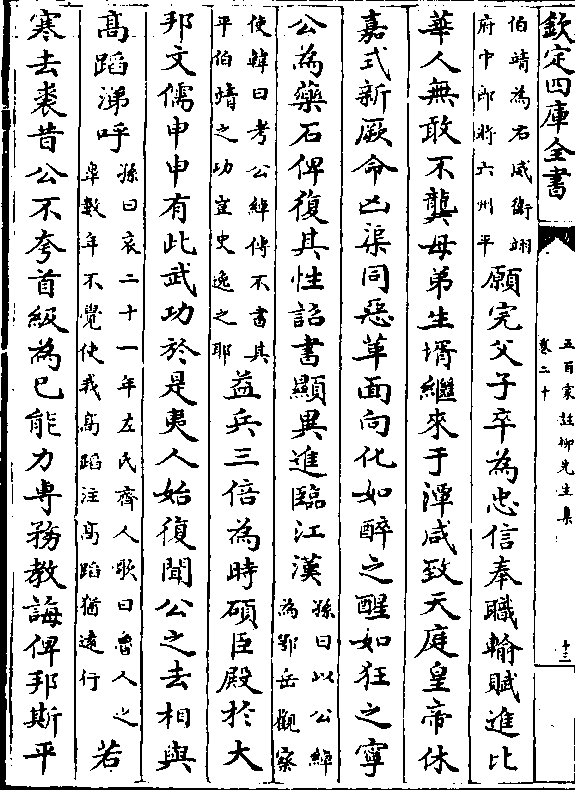 欽定四庫全書
五百家註柳先生集
卷二十
十三
伯靖為右威衛翊
府中郎將六州平
願完父子卒為忠信奉職輸賦進比
華人無敢不龔母弟生壻繼來于潭咸致天庭皇帝休
嘉式新厥命凶渠同惡革面向化如醉之醒如狂之寧
公為藥石俾復其性詔書顯異進臨江漢
孫曰以公綽
為鄂岳觀察
使韓曰考公綽傳不書其
平伯靖之功豈史逸之耶
益兵三倍為時碩臣殿於大
邦文儒申申有此武功於是夷人始復聞公之去相與
高蹈涕呼
孫曰哀二十一年左氏齊人歌曰魯人之
臯數年不覺使我高蹈注高蹈猶逺行
若
寒去裘昔公不夸首級為已能力專務教誨俾邦斯平